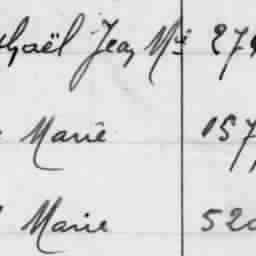 haël Jean Mie 274
Marie 157
Marie 520